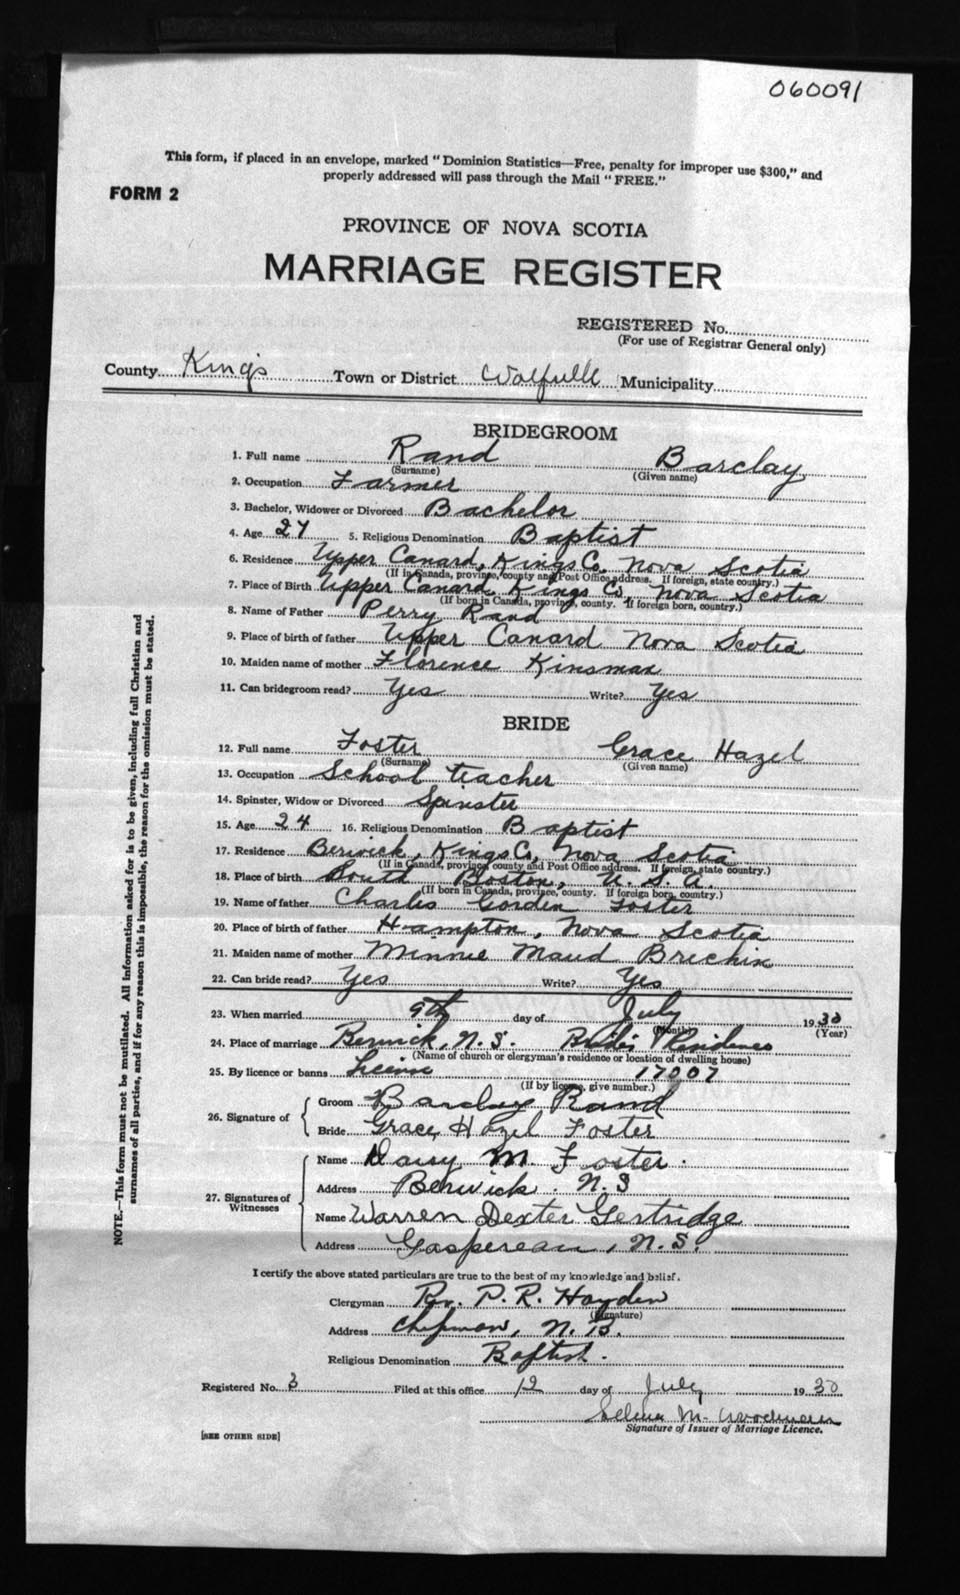 060091
This form, if placed in an envelope, marked "Dominion Statistics—Free, penalty for improper use $300," and
properly addressed will pass through the Mail "FREE."
FORM 2
PROVINCE OF NOVA SCOTIA
MARRIAGE REGISTER
REGISTERED No.
(For use of Registrar General only)
County Kings Town or District Wolfville Municipality
BRIDEGROOM
1. Full name Rand Barclay
(Surname) (Given name)
2. Occupation Farmer
3. Bachelor, Widower or Divorced Bachelor
4. Age 27 5. Religious Denomination Baptist
6. Residence Upper Canard, Kings Co, Nova Scotia
(If in Canada, province, county and Post Office address. If foreign, state country.)
7. Place of Birth Upper Canard, Kings Co, Nova Scotia
(If born in Canada, province, county. If foreign born, country.)
8. Name of Father Perry Rand
9. Place of birth of father Upper Canard Nova Scotia
10. Maiden name of mother Florence Kinsman
11. Can bridegroom read? Yes Write? Yes
BRIDE
12. Full name Foster Grace Hazel
(Surname) (Given name)
13. Occupation School teacher
14. Spinster, Widow or Divorced Spinster
15. Age 24 16. Religious Denomination Baptist
17. Residence Berwick, Kings Co, Nova Scotia
(If in Canada, province, county and Post Office address. If foreign, state country.)
18. Place of birth South Boston, U.S.A.
(If born in Canada, province, county. If foreign born, country.)
19. Name of father Charles Gorden Foster
20. Place of birth of father Hampton, Nova Scotia
21. Maiden name of mother Minnie Maud Brechin
22. Can bride read? Yes Write? Yes
23. When married 9th day of July 1930
(Month) (Year)
24. Place of marriage Berwick, N.S. Bride's Residence
(Name of church or clergyman's residence or location of dwelling house)
25. By licence or banns License 17007
(If by license, give number.)
26. Signature of Groom Barclay Rand
Bride Grace Hazel Foster
27. Signatures of Witnesses Name Daisy M Foster.
Address Berwick. N.S
Name Warren Dexter Gertridge
Address Gaspereau, N.S.
I certify the above stated particulars are true to the best of my knowledge and belief.
Clergyman Rev. P. R. Hayden
(Signature)
Address Chipman, N.B.
Religious Denomination Baptist.
Registered No. 3 Filed at this office 12 day of July 1930
Selina M.
Signature of Issuer of Marriage Licence.
[SEE OTHER SIDE]
NOTE.—This form must not be mutilated. All information asked for is to be given, including full Christian and
surnames of all parties, and if for any reason this is impossible, the reason for the omission must be stated.